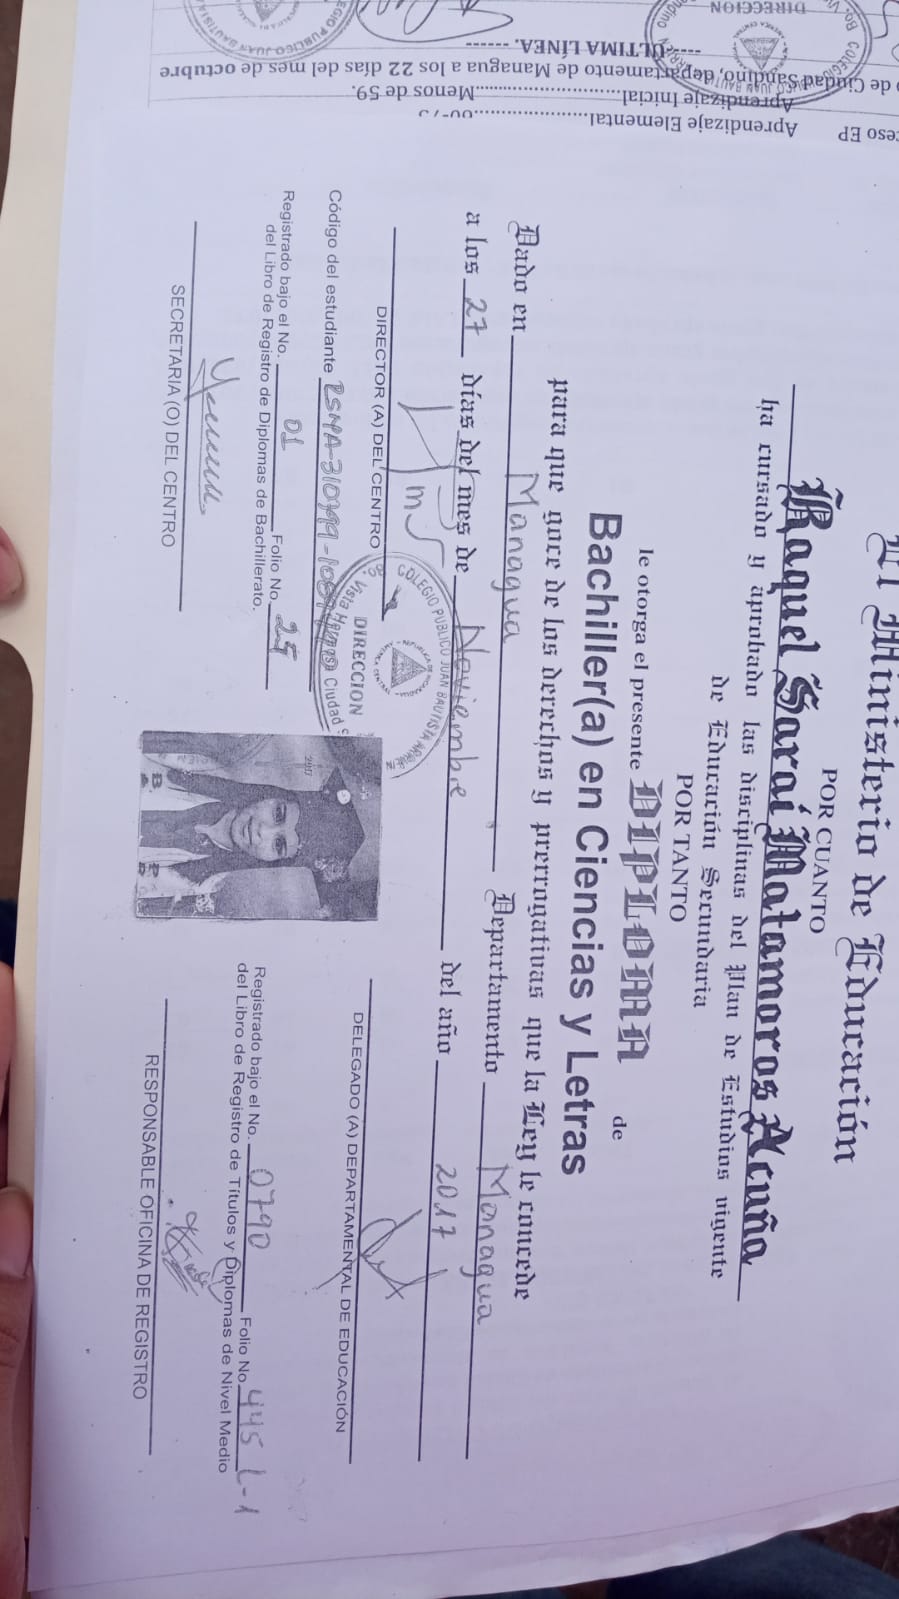 El Ministerio de Educación
POR CUANTO
Raquel Saraí Matamoros Acuña
ha cursado y aprobado las disciplinas del Plan de Estudios vigente
de Educación Secundaria
POR TANTO
le otorga el presente DIPLOMA de
Bachiller(a) en Ciencias y Letras
para que goce de los derechos y prerrogativas que la Ley le concede
Dado en Managua Departamento Managua
a los 27 días del mes de Noviembre del año 2017
DIRECTOR (A) DEL CENTRO
COLEGIO PUBLICO JUAN BAUTISTA
DIRECCION
Bo. Vista Hermosa Ciudad
DELEGADO (A) DEPARTAMENTAL DE EDUCACIÓN
Código del estudiante
Registrado bajo el No. 01 Folio No. 25
del Libro de Registro de Diplomas de Bachillerato.
SECRETARIA (O) DEL CENTRO
Registrado bajo el No. 0790 Folio No 445 L-1
del Libro de Registro de Títulos y Diplomas de Nivel Medio
RESPONSABLE OFICINA DE REGISTRO
2017
Aprendizaje Elemental
Aprendizaje Inicial Menos de 59.
de Ciudad Sandino, departamento de Managua a los 22 días del mes de octubre
ÚLTIMA LÍNEA.
DIRECCION